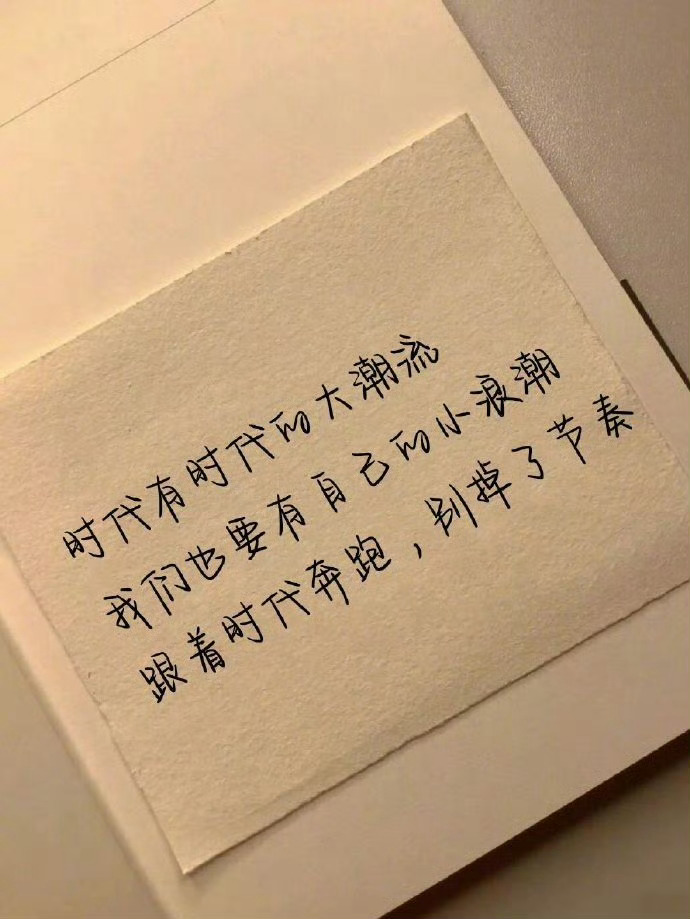 时代有时代的大潮流
我们也要有自己的小浪潮
跟着时代奔跑，别掉了节奏